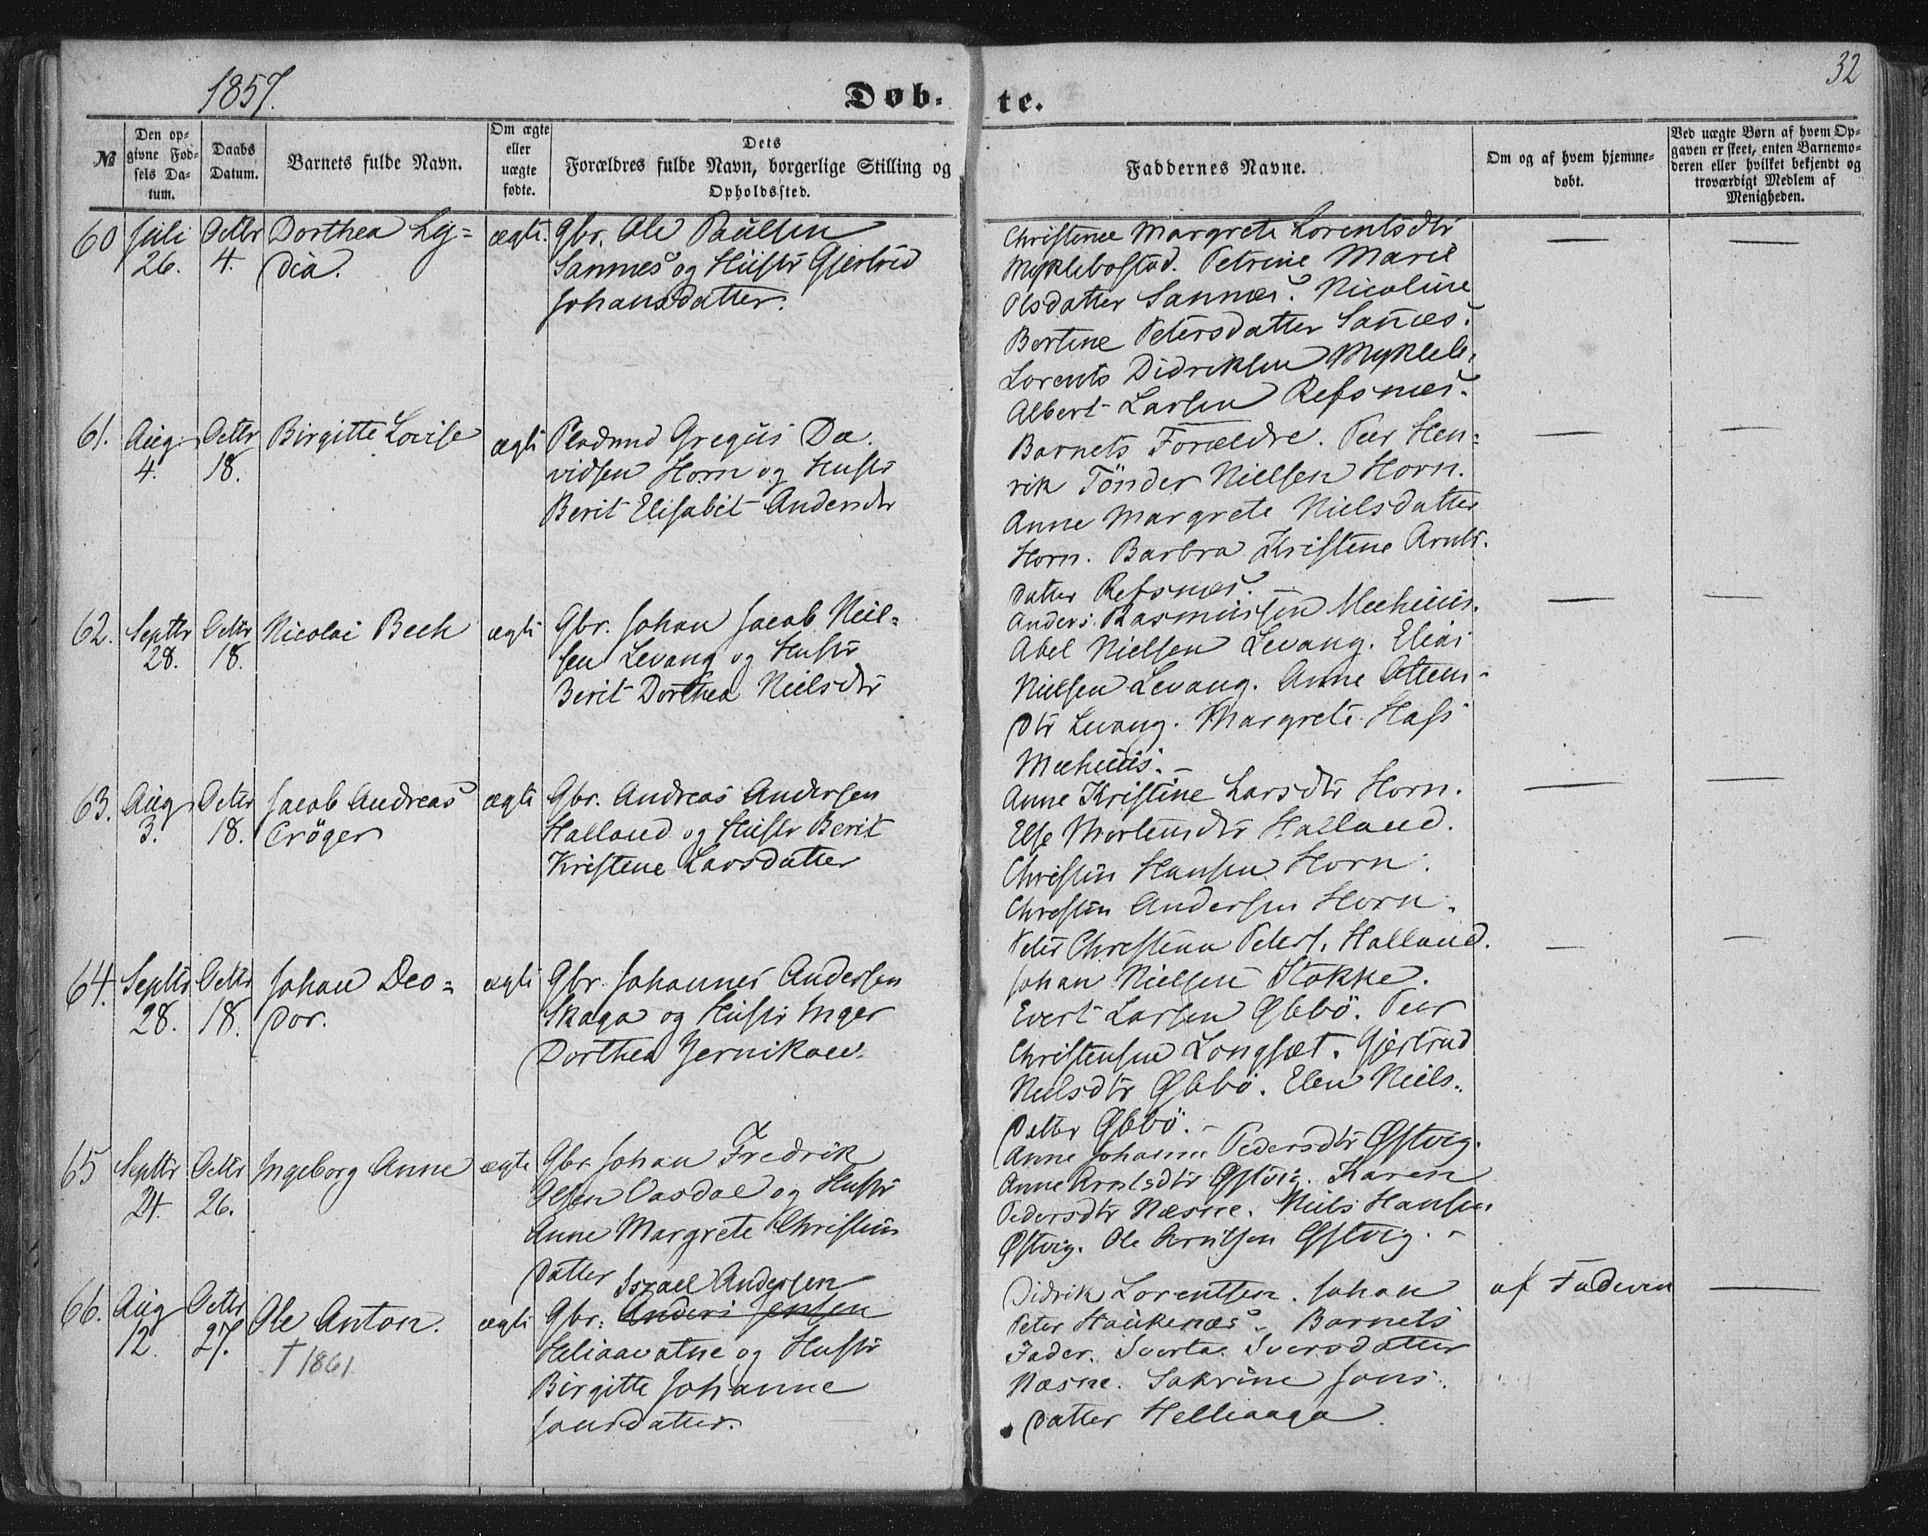 1857.
Døb-
te.
32
№
Den op-
givne Fød-
sels Da-
tum.
Daabs
Datum.
Barnets fulde Navn.
Om ægte
eller
uægte
fødte.
Dets
Forældres fulde Navn, borgerlige Stilling og
Opholdssted.
Faddernes Navne.
Om og af hvem hjemme-
døbt.
Ved uægte Børn af hvem Op-
gaven er skeet, enten Barnemo-
deren eller hvilket bekjendt og
troværdigt Medlem af
Menigheden.
60
Juli
26.
Octbr
4.
Dorthea Ly=
dia.
ægte.
Gbr. Ole Paulsen
Sannes og Hustr Gjertrud
Johansdatter.
Christence Margrete Lorentsdtr
Myklebostad. Petrine Marie
Olsdatter Sannes. Nicoline
Bertine Petersdatter Sanes.
Lorents Didriksen Mykleb.
Albert Larsen Refsnes.
61.
Aug.
4.
Octbr
18.
Birgitte Lovise
ægte
Pladsmd Gregus Da.
vidsen Horn og Hustr
Berit Elisabet Andersdr
Barnets Forældre. Peer Hen=
rik Tönder Nielsen Horn.
Anne Margrete Nielsdatter
Horn. Barbra Kristine Arnts.
datter Refsnes.
62.
Septbr
28.
Octbr
18.
Nicolai Bech
ægte
Gbr. Johan Jacob Niel=
sen Levang og Hustr
Berit Dorthea Nielsdtr
Anders Rasmussen Meehuus.
Abel Nielsen Levang. Elias
Nielsen Levang. Anne Ottens-
dtr Levang. Margrete Hass
Meehuus.-
63.
Aug
3.
Octbr
18.
Jacob Andreas
Cröger
ægte
Gbr. Andreas Andersen
Halland og Hustr Berit
Kristene Larsdatter
Anne Kristine Larsdtr Horn.
Else Mortensdtr Halland.
Christen Hansen Horn.
Christen Andersen Horn.
Peter Christian Peters. Halland.
64.
Septbr
28.
Octbr
18.
Johan Deo=
dor.
ægte
Gbr. Johannes Andersen
Skaga og Hustr Inger
Dorthea Jernikaew.
Johan Nielsen Stokke.
Evert Larsen Øbbö. Peer
Christensen Longsæt. Gjertrud
Nielsdtr Øbbö. Elen Niels.
datter Øbbö.-
65
Septbr
24.
Octbr
26.
Ingeborg Anne
ægte
Gbr. Johan Fredrik
Olsen Vasdal og Hustr
Anne Margrete Christens
datter
Anne Johanne Pedersdtr Østvig.
Anne Arntsdtr Østvig. Karen
Pedersdtr Næsne. Niels Hansen
Østvig. Ole Arntsen Østvig.-
66.
Aug
12.
Octbr
27.
Ole Anton.
† 1861
ægte
Israel Andersen
Gbr. Anders Jensen
Heliaavatne og Hustr
Birgitte Johanne
Jonsdatter.
Didrik Lorentsen. Johan
Peter Haukenæs. Barnets
Fader. Sverta Sversdatter
Næsne. Sakrine Jons.
datter Helliaaga.
af Faderen